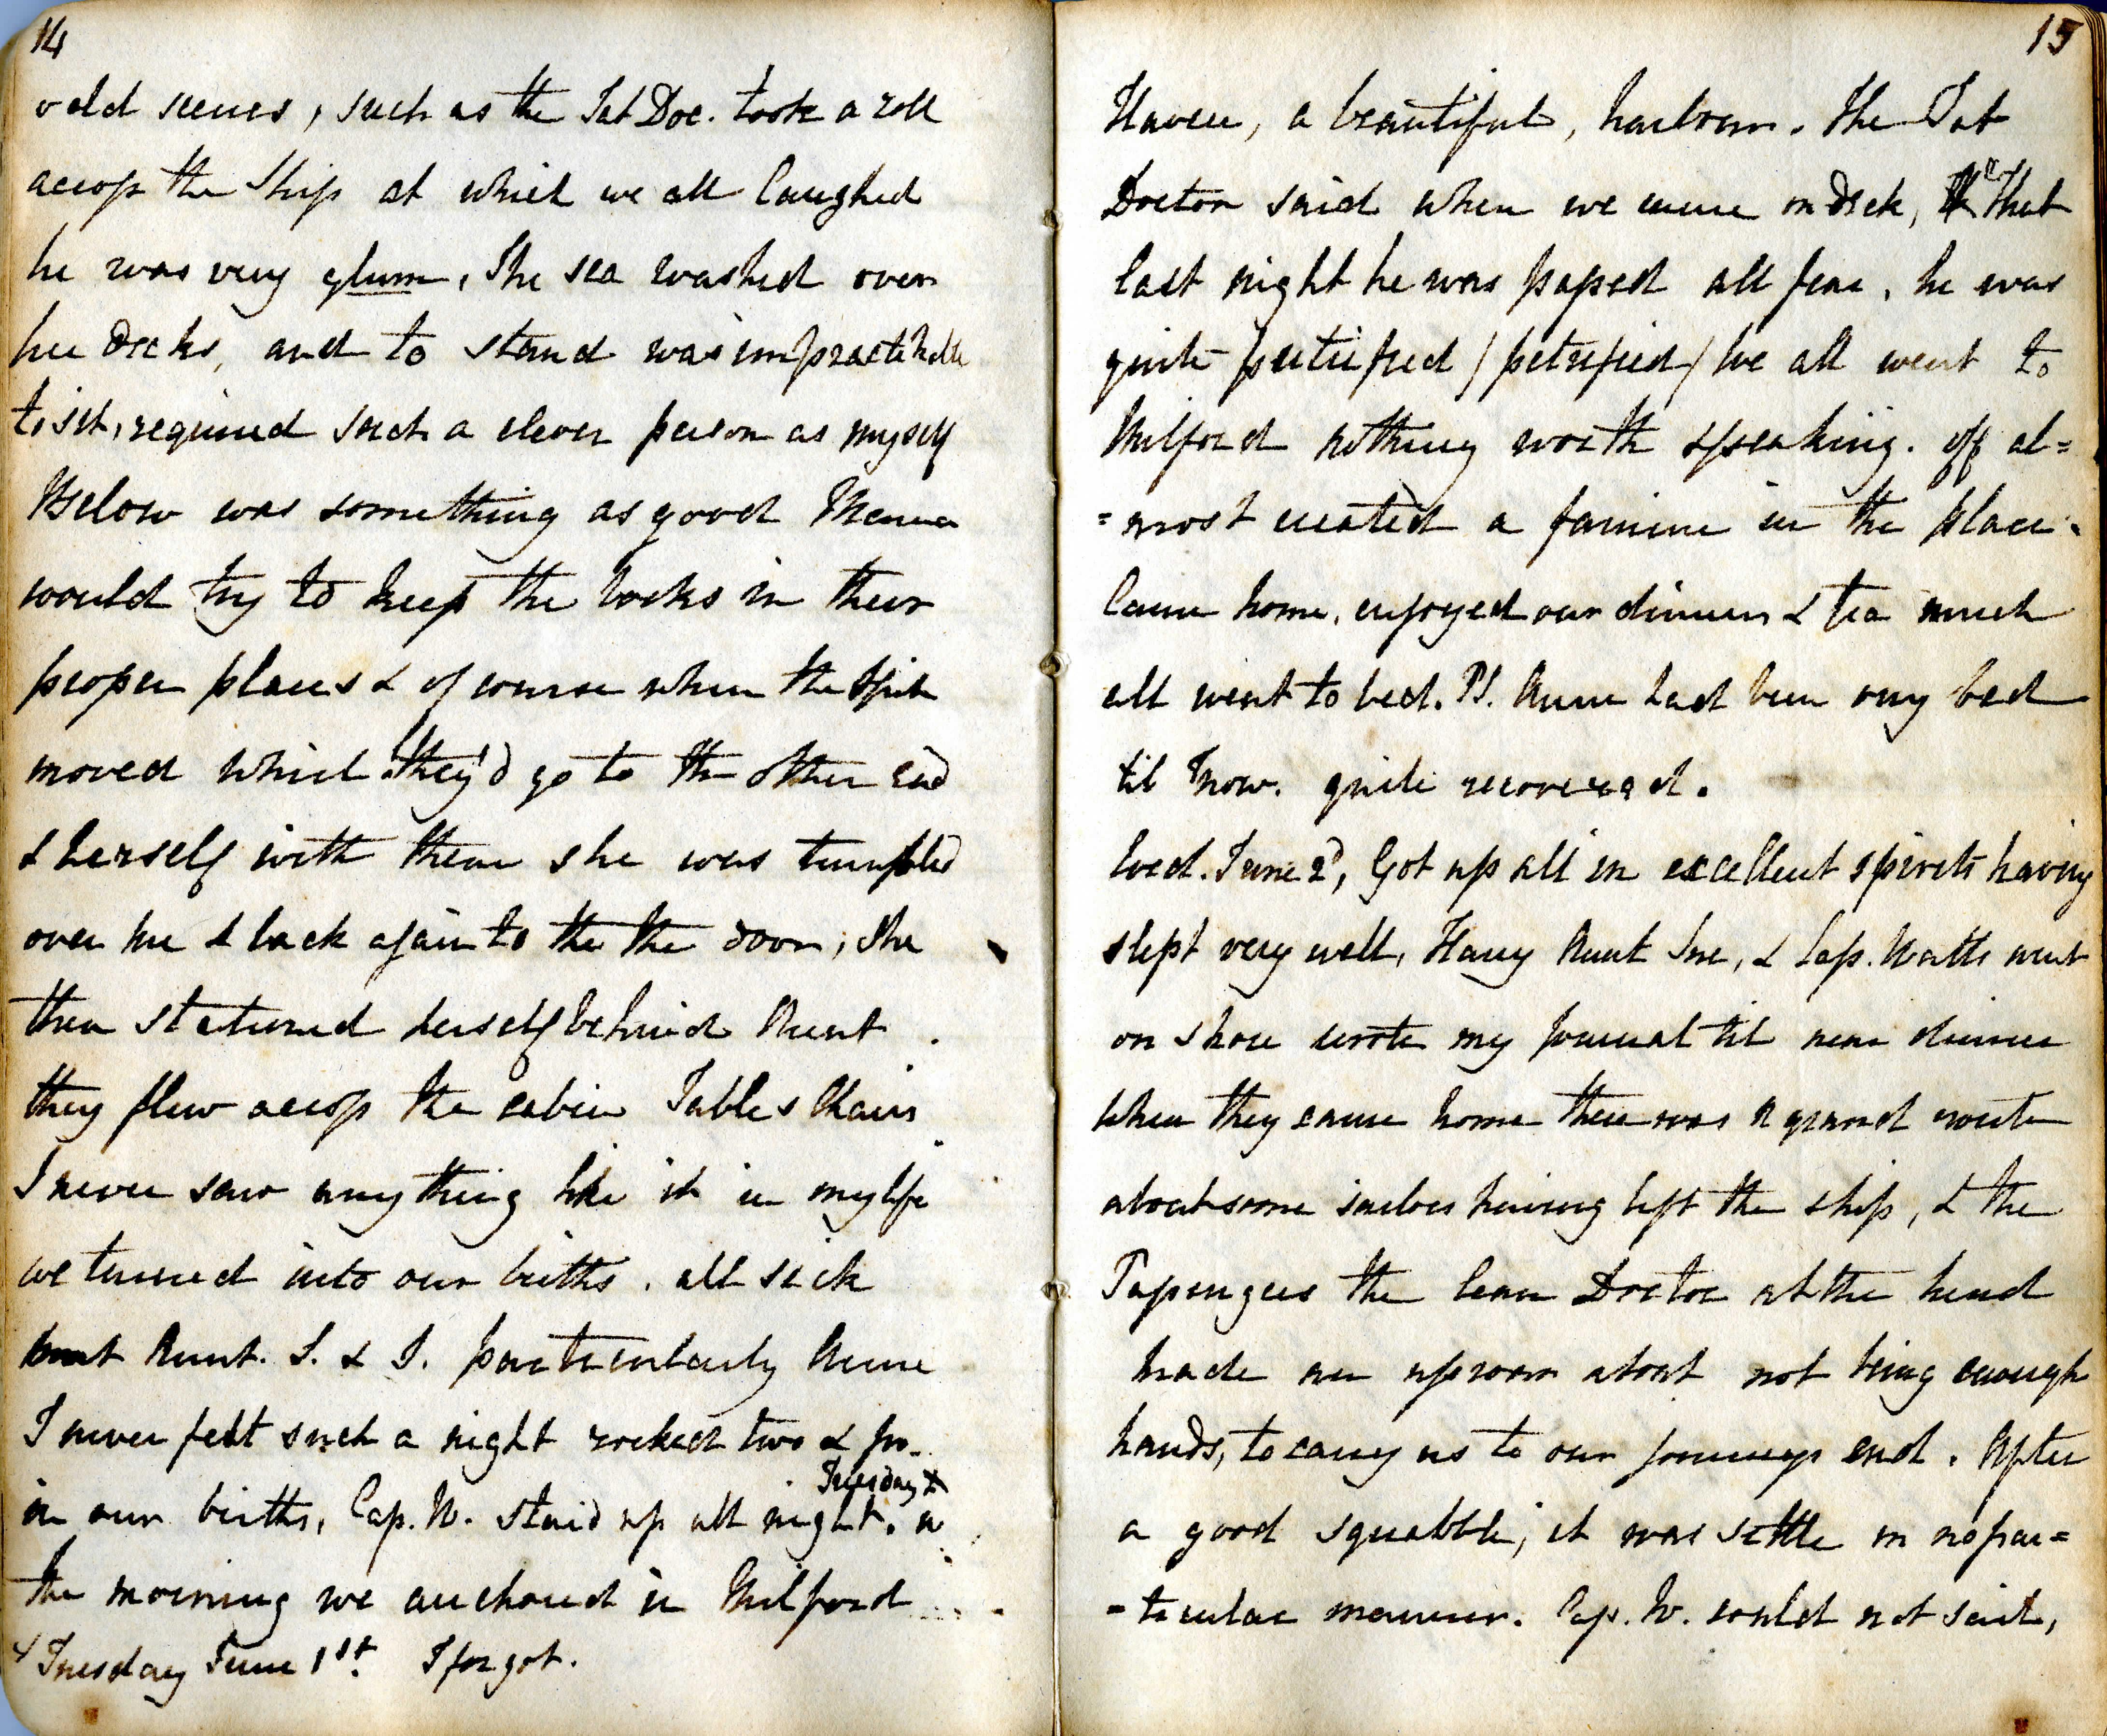 14
odd scenes, such as the Fat Doc. took a roll
across the Ship at which we all laughed
he was very glum, The sea washed over
her Decks, and to stand was impracticable
to sit, required such a clever person as myself
Below was something as good Mama
would try to keep the books in their
proper places & of course when the Ship
moved which they'd go to the other end
& herself with them she was tumpled
over me & back again to the the door, She
then stationed herself behind Aunt
they flew across the cabin Tables Chairs
I never saw anything like it in my life
we turned into our births. all sick
but Aunt. J. & I. particularly Anne
I never felt such a night rocked two & fro
in our births, Cap. W. staid up all night. Tuesday + in
the morning we anchored in Milford
+ Tuesday June 1st. I forgot.
15
Haven, a beautiful, harbour. The Fat
Doctor said when we came on Deck, "That
last night he was passed all fear, he was
quite putrified / petrified / We all went to
Milford nothing worth speaking. off al=
=most created a famine in the place.
Came home, enjoyed our dinner & tea much
all went to bed. PS. Anne had been very bad
til now. quite recovered.
Wed. June 2d, Got up all in excellent spirits having
slept very well, Harry Aunt Jne, & Cap. Watts went
on shore wrote my journal til near dinner
When they came home there was a grand route
about some sailors having left the ship, & the
Passengers the lean Doctor at the head
made an uproar about not being enough
hands, to carry us to our journeys end. After
a good squabble, it was settle in no par=
=ticular manner. Cap. W. could not sail,